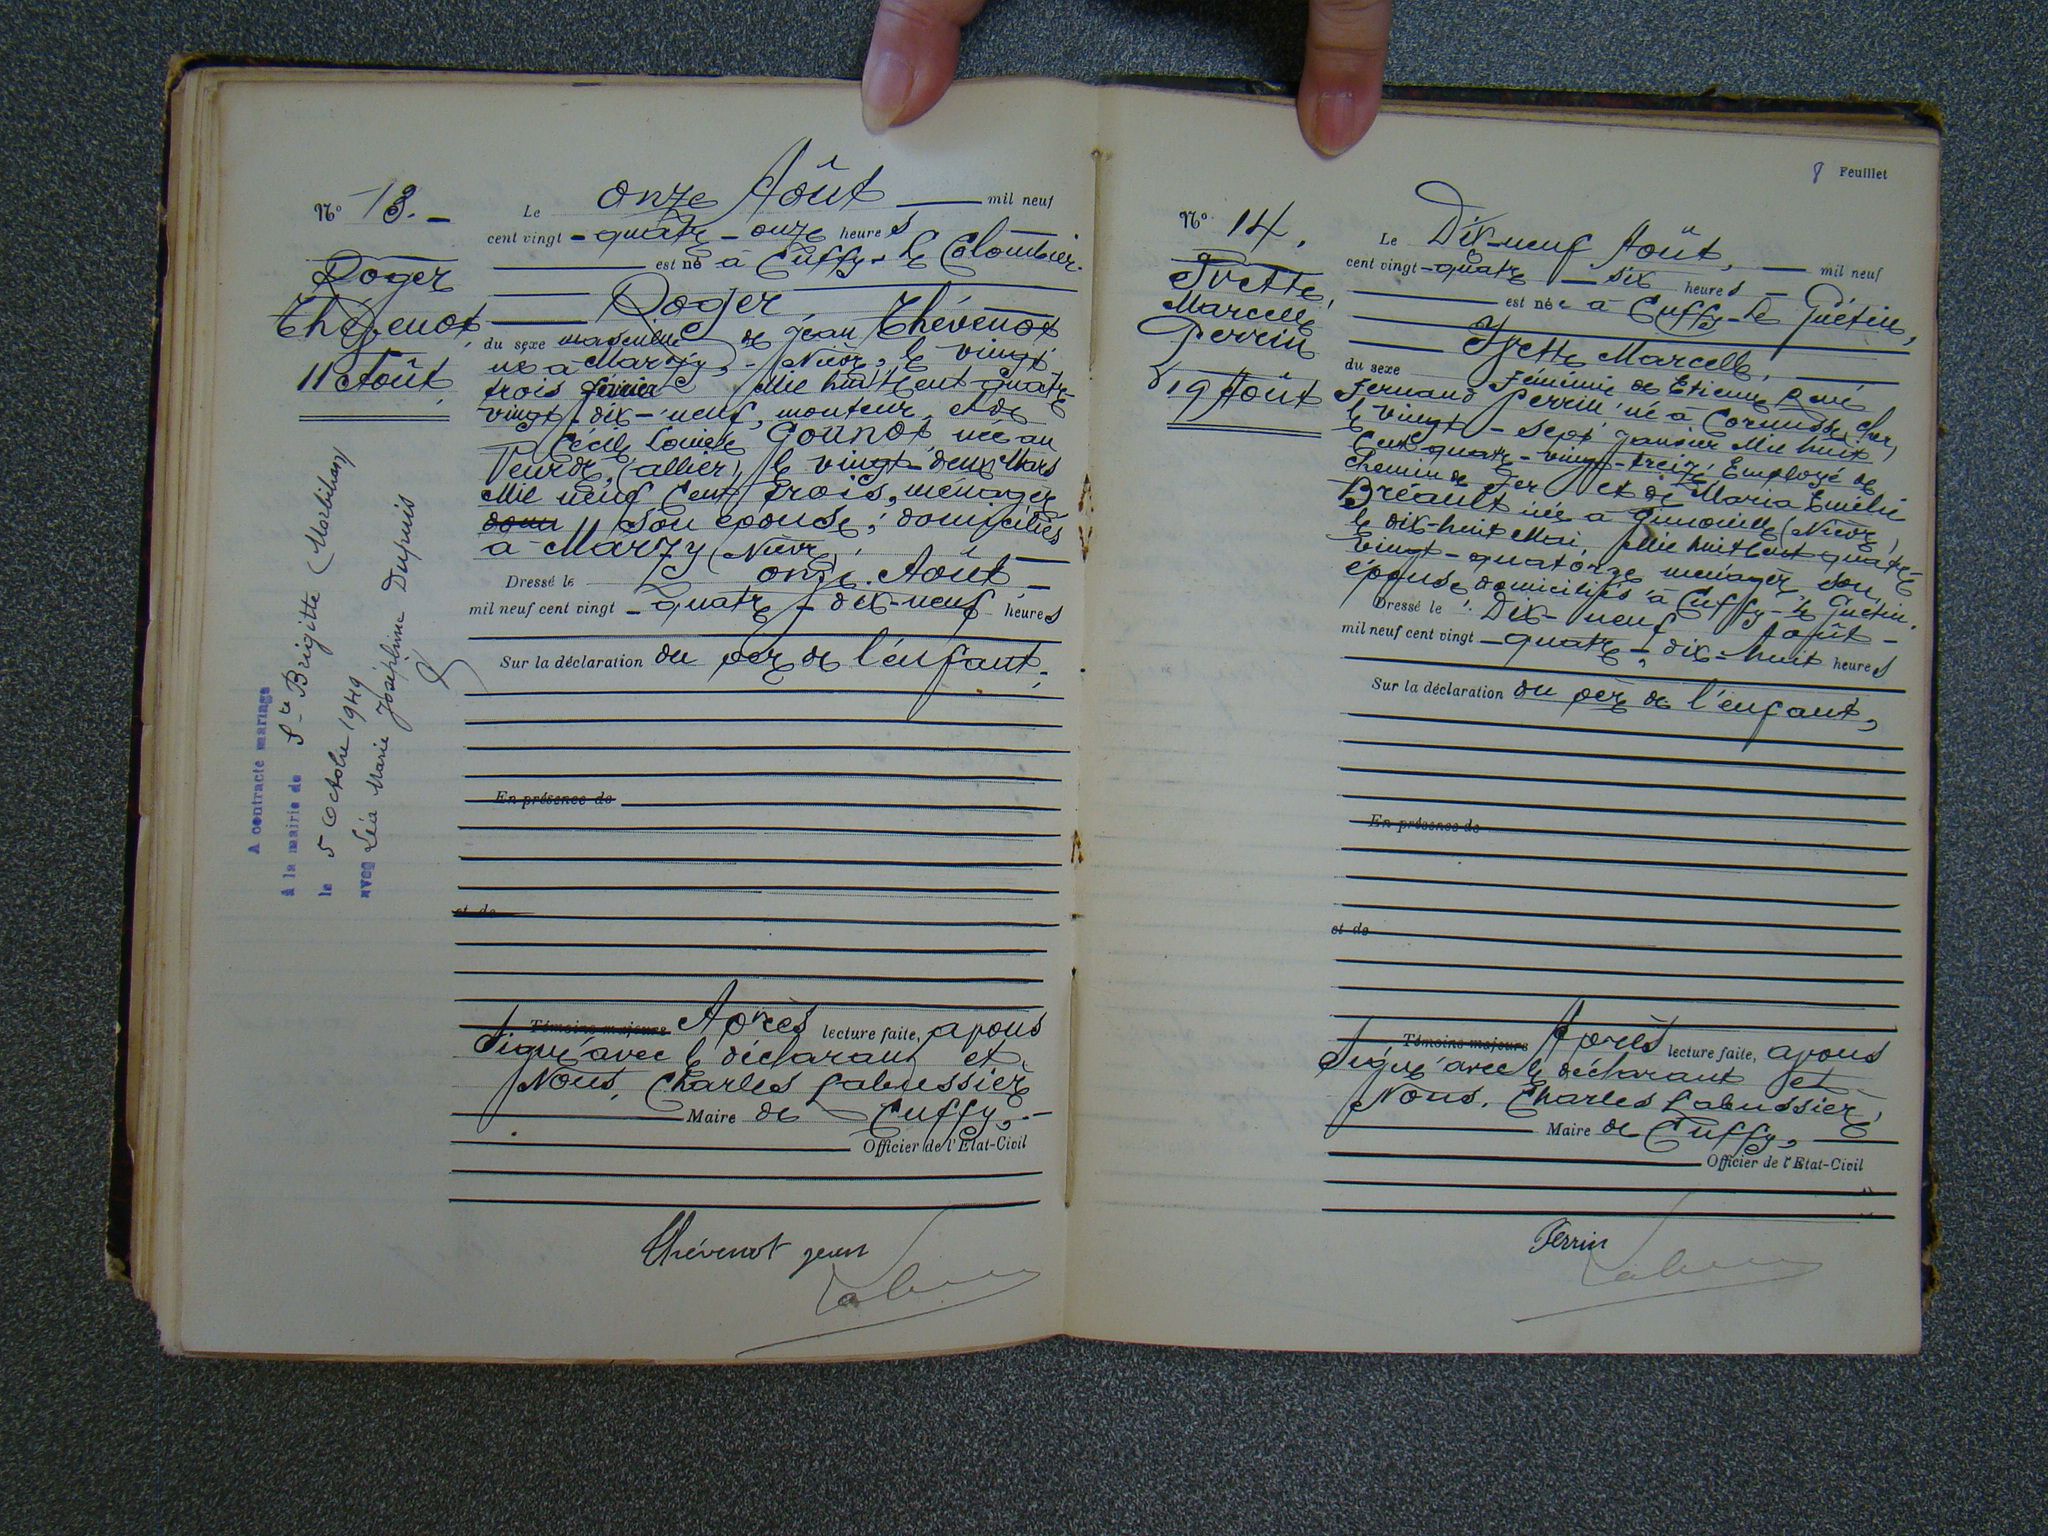 Nº 13. -
Roger
Thévenot,
11 Août,
Le onze Août mil neuf
cent vingt - quatre - onze heures
est né à Cuffy - le Colombier.
Roger,
du sexe masculin de Jean Thévenot
né à Marzy, - Nièvre, le vingt
trois février Mil huit cent quatre
vingt dix-neuf, monteur, et de
Cécile Louise Gounot née au
Veurdre, (allier), le vingt deux Mars
Mil neuf cent trois, ménagère
son épouse, domiciliés
à Marzy (Nièvre),
Dressé le onze Août -
mil neuf cent vingt - quatre - dix-neuf heures
Sur la déclaration du père de l'enfant.
En présence de
et de
Témoins majeurs Après lecture faite, avons
signé avec le déclarant et
Nous, Charles Labussière
Maire de Cuffy, -
Officier de l'Etat-Civil
Thévenot jean
A contracté mariage
à la mairie de Ste Brigitte (Morbihan)
le 5 Octobre 1949
avec Léa Marie Joséphine Dupuis
8 Feuillet
Nº 14.
Yvette,
Marcelle
Perrin
19 Août
Le Dix-neuf Août, mil neuf
cent vingt - quatre - six heures -
est née à Cuffy - le Guétin,
Yvette Marcelle,
du sexe Féminin de Etienne René
Fernand Perrin né à Cornusse, Cher,
le vingt - sept janvier Mil huit
Cent quatre - vingt - treize, Employé de
Chemin de Fer et de Maria Emélie
Bréault née à Gimouille (Nièvre)
le dix-huit Mai, Mil huit cent quatre
vingt - quatorze ménagère, son
épouse domiciliés à Cuffy - le Guétin.
Dressé le Dix - neuf Août -
mil neuf cent vingt - quatre, - dix - huit heures
Sur la déclaration du père de l'enfant,
En présence de
et de
Témoins majeurs Après lecture faite, avons
signé avec le déclarant et
Nous, Charles Labussière,
Maire de Cuffy,
Officier de l'Etat-Civil
Perrin